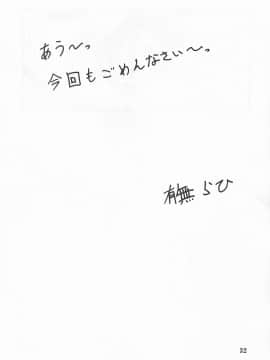 あう〜っ。
今回もごめんなさい〜。
有無らひ
32